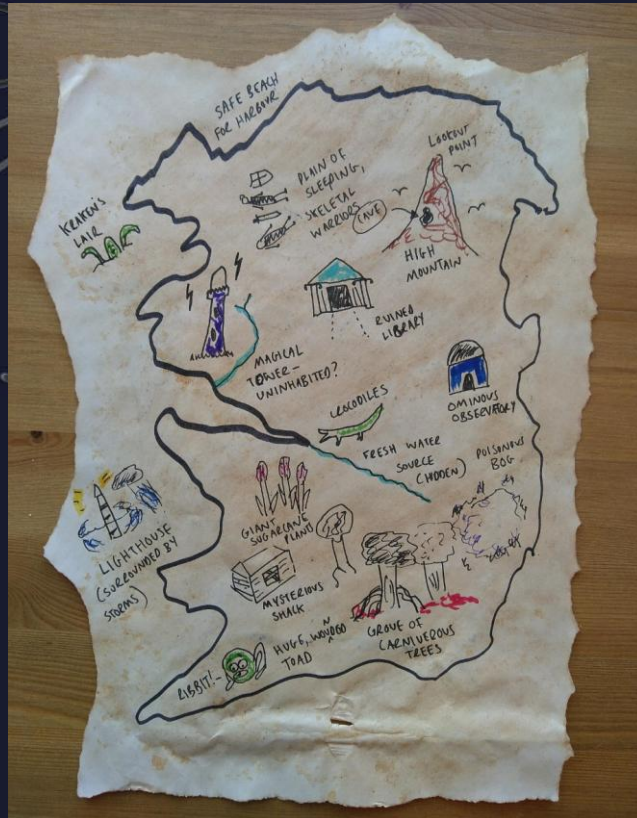 SAFE BEACH
FOR HARBOUR
LOOKOUT
POINT
PLAIN OF
SLEEPING,
SKELETAL
WARRIORS
CAVE
KRAKEN'S
LAIR
HIGH
MOUNTAIN
RUINED
LIBRARY
MAGICAL
TOWER -
UNINHABITED?
OMINOUS
OBSERVATORY
CROCODILES
FRESH WATER
SOURCE
(HIDDEN)
POISONOUS
BOG
GIANT
SUGARCANE
PLANTS
LIGHTHOUSE
(SURROUNDED BY
STORMS)
MYSTERIOUS
SHACK
GROVE OF
CARNIVEROUS
TREES
HUGE, WOUNDED
TOAD
RIBBIT! -